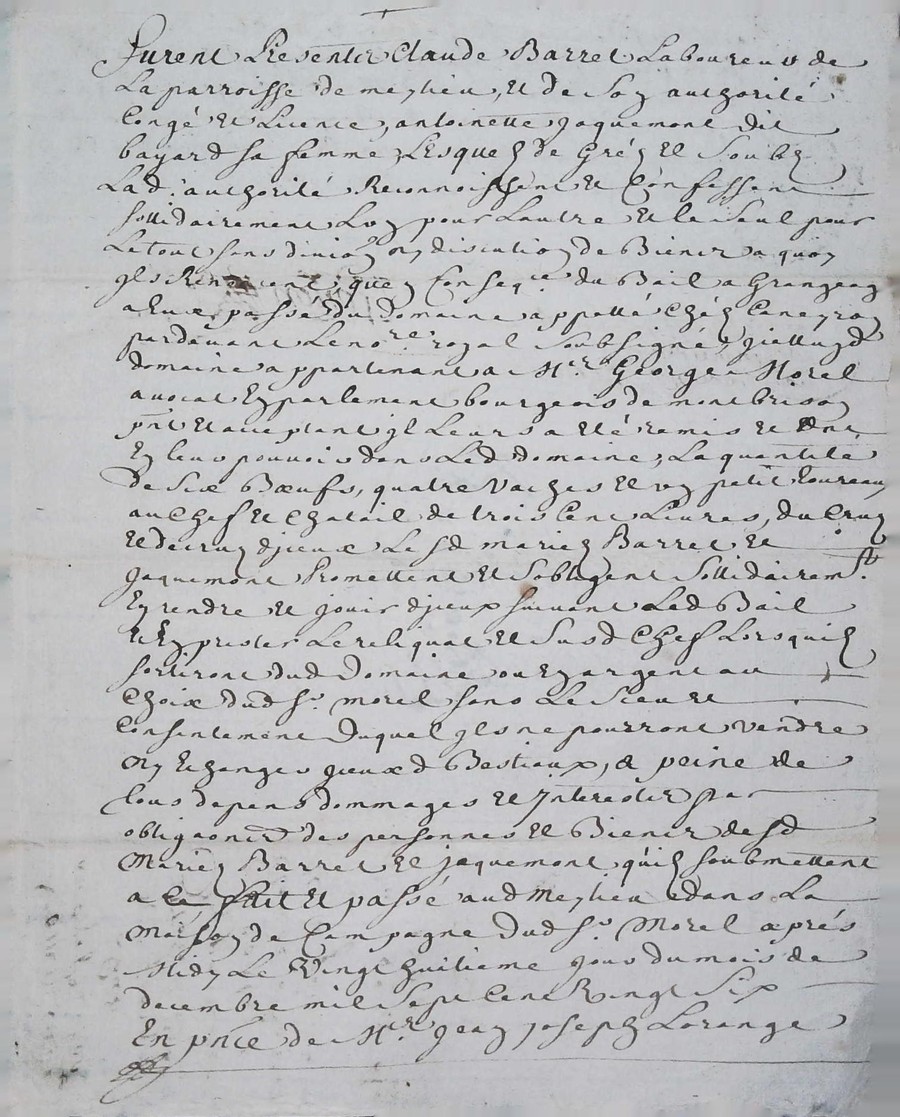 furent Presentz Claude Barret Laboureur de
La parroisse de meylieu, Et de Soy authorité
Congé Et Licence, antoinette jaquemont dit
bayard sa femme Lesquelz de Gréz Et Soubz
Lad. authorité Reconnoissent Et Confessent
sollidairement Lun pour Lautre Et le Seul pour
Letout sans divion ny discution de Bienez a quoy
jls Renoncent, que en Conseqce. du Bail a Grangeag
passé du domaine appellé Chéz
pardevant Lenore. royal Soubsigné, jcelluy d
domaine appartenant a Mr. George Morel
avocat En parlement bourgeois de montbrison
pnt Et acceptant jl Leurs a Eté remis Et
En leur pouvoir dans Led domaine, La quantité
de Six Bœufs, quatre Vaches Et un petit toureau
au Chef Et Chatail de trois Cent Livres, du Cruz
Et decruz djceux Lesd mariez Barret Et
jaquemont Promettent Et Sobligent Sollidairemt.
En rendre Et jouir djceux suivant Led Bail
Et En prester Le reliquat Et Susd Chef Lorsquilz
sortiront dud Domaine ou En argent au
Choix dud sr. morel sans Le
Consentement Duquel jls ne pourront vendre
ny Echanger jceux d Bestiaux, a peine de
tous depens dommages Et jnterestz par
obligaonz des personnes Et Bienez desd
Mariez Barret Et jaquemont quilz soubmettent
a fait Et passé aud Meylieu dans La
Maison de Campagne Dud sr. Morel aprés
Midy Le Vingt huitieme jour du mois de
decembre mil Sept Cent Vingt Six
En pnce de Mr. jean joseph Lorange